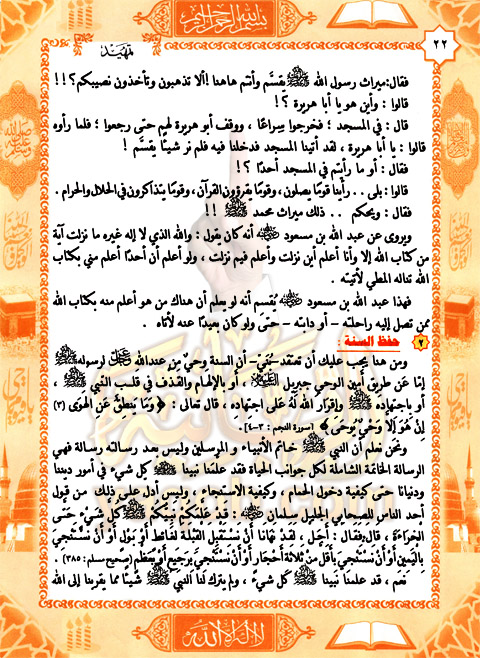 بسم الله الرحمن الرحيم
٢٢
تمهيد
فقال: ميراث رسول الله ﷺ يقسَّم وأنتم هاهنا! ألا تذهبون وتأخذون نصيبكم؟!!
قالوا : وأين هو يا أبا هريرة ؟!
قال : في المسجد ؛ فخرجوا سراعًا ، ووقف أبو هريرة لهم حتى رجعوا ؛ فلما رأوه
قالوا : يا أبا هريرة ، لقد أتينا المسجد فدخلنا فيه فلم نر شيئًا يقسَّم !
فقال : أو ما رأيتم في المسجد أحدًا ؟!
قالوا: بلى .. رأينا قومًا يصلون، وقومًا يقرؤون القرآن، وقومًا يتذاكرون في الحلال والحرام .
فقال : ويحكم .. ذلك ميراث محمد ﷺ !!
ويروى عن عبد الله بن مسعود رضي الله عنه أنه كان يقول : والله الذي لا إله غيره ما نزلت آية
من كتاب الله إلا وأنا أعلم أين نزلت وأعلم فيم نزلت ، ولو أعلم أن أحدًا أعلم مني بكتاب
الله تناله المطي لأتيته .
فهذا عبد الله بن مسعود رضي الله عنه يُقسم أنه لو يعلم أن هناك من هو أعلم منه بكتاب الله
ممن تصل إليه راحلته – أو دابته – حتى ولو كان بعيدًا عنه لأتاه .
٢ حفظ السنة :
ومن هنا يجب عليك أن تعتقد يَا بُنَيَّ- أن السنة وحيٌ من عند الله عز وجل لرسوله ﷺ
إمّا عن طريق أمين الوحي جبريل عليه السلام ، أو بالإلهام والقذف في قلب النبي ﷺ ،
أو باجتهاده ﷺ وإقرار الله لهُ على اجتهاده ، قال تعالى : ﴿ وَمَا يَنطِقُ عَنِ الْهَوَى (٣)
إِنْ هُوَ إِلَّا وَحْيٌ يُوحَى ﴾ [سورة النجم : ٣-٤].
ونحن نعلم أن النبي ﷺ خاتم الأنبياء و المرسلين وليس بعد رسالته رسالة فهي
الرسالة الخاتمة الشاملة لكل جوانب الحياة فقد علمنا نبينا ﷺ كل شيء في أمور ديننا
ودنيانا حتى كيفية دخول الحمام ، وكيفية الاستنجاء ، وليس أدل على ذلك من قول
أحد الناس للصحابي الجليل سلمان رضي الله عنه : قَدْ عَلَّمَكُمْ نَبِيُّكُمْ ﷺ كُلَّ شَيْءٍ حَتَّى
الْخِرَاءَةَ ، قال: فقال : أَجَلْ ، لَقَدْ نَهَانَا أَنْ نَسْتَقْبِلَ الْقِبْلَةَ لِغَائِطٍ أَوْ بَوْلٍ أَوْ أَنْ نَسْتَنْجِيَ
بِالْيَمِينِ أَوْ أَنْ نَسْتَنْجِيَ بِأَقَلَّ مِنْ ثَلَاثَةِ أَحْجَارٍ أَوْ أَنْ نَسْتَنْجِيَ بِرَجِيعٍ أَوْ بِعَظْمٍ (صحيح مسلم : ٣٨٥)
نعم ، قد علمنا نبينا ﷺ كل شيءٍ ، ولم يترك لنا النبي ﷺ شيئًا مما يقربنا إلى الله
لا إله إلا الله